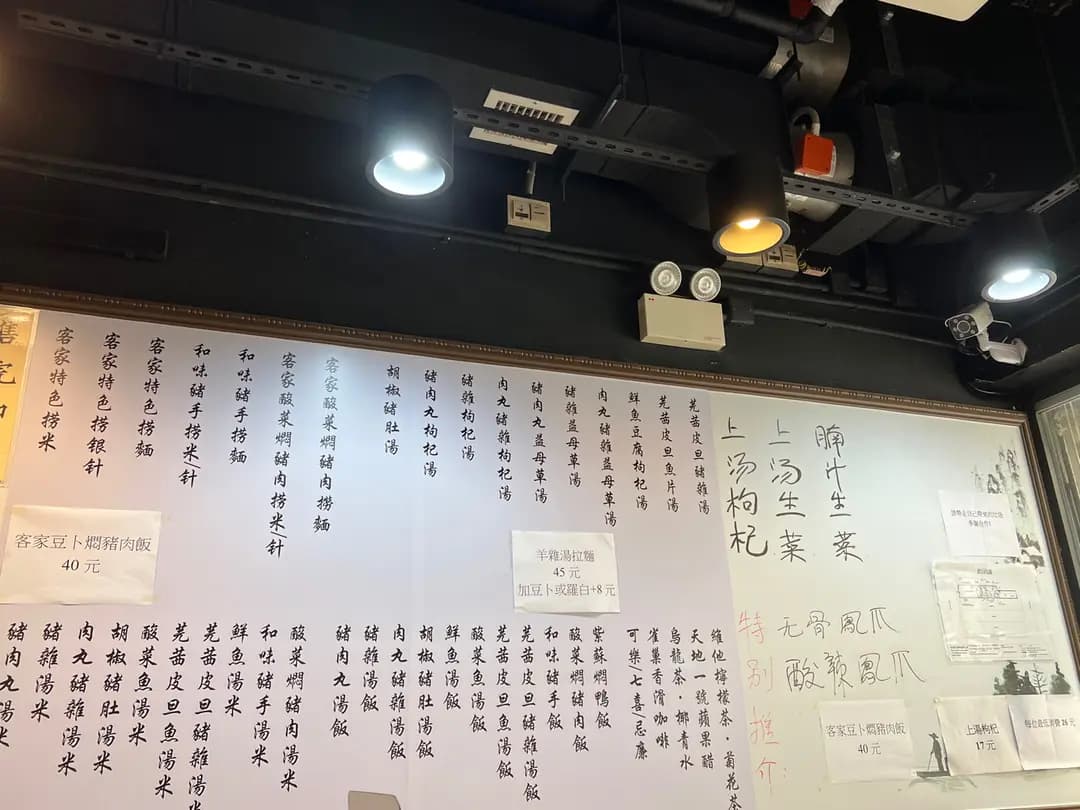 腩汁生菜
上汤生菜
上汤枸杞
芫茜皮旦豬雜湯
芫茜皮旦魚片湯
鮮魚豆腐枸杞湯
肉丸豬雜益母草湯
豬雜益母草湯
豬肉丸益母草湯
肉丸豬雜枸杞湯
豬雜枸杞湯
豬肉丸枸杞湯
胡椒豬肚湯
客家酸菜燜豬肉撈麵
客家酸菜燜豬肉捞米/针
和味豬手撈麵
和味豬手捞米/针
客家特色撈麵
客家特色捞银针
客家特色捞米
羊雜湯拉麵
45 元
加豆卜或蘿白+8 元
客家豆卜燜豬肉飯
40 元
特别推介:
无骨鳳爪
酸辣鳳爪
客家豆卜燜豬肉飯
40 元
上湯枸杞
17 元
每位最低消費 26 元
維他檸檬茶·菊花茶
天地一號蘋果醋
烏龍茶·椰青水
雀巢香滑咖啡
可樂/七喜/忌廉
紫蘇燜鴨飯
酸菜燜豬肉飯
和味豬手飯
芫茜皮旦豬雜湯飯
芫茜皮旦魚湯飯
酸菜魚湯飯
鮮魚湯飯
胡椒豬肚湯飯
肉丸豬雜湯飯
豬雜湯飯
豬肉丸湯飯
酸菜燜豬肉湯米
和味豬手湯米
鮮魚湯米
芫茜皮旦豬雜湯米
芫茜皮旦魚湯米
酸菜魚湯米
胡椒豬肚湯米
肉丸豬雜湯米
豬雜湯米
豬肉丸湯米